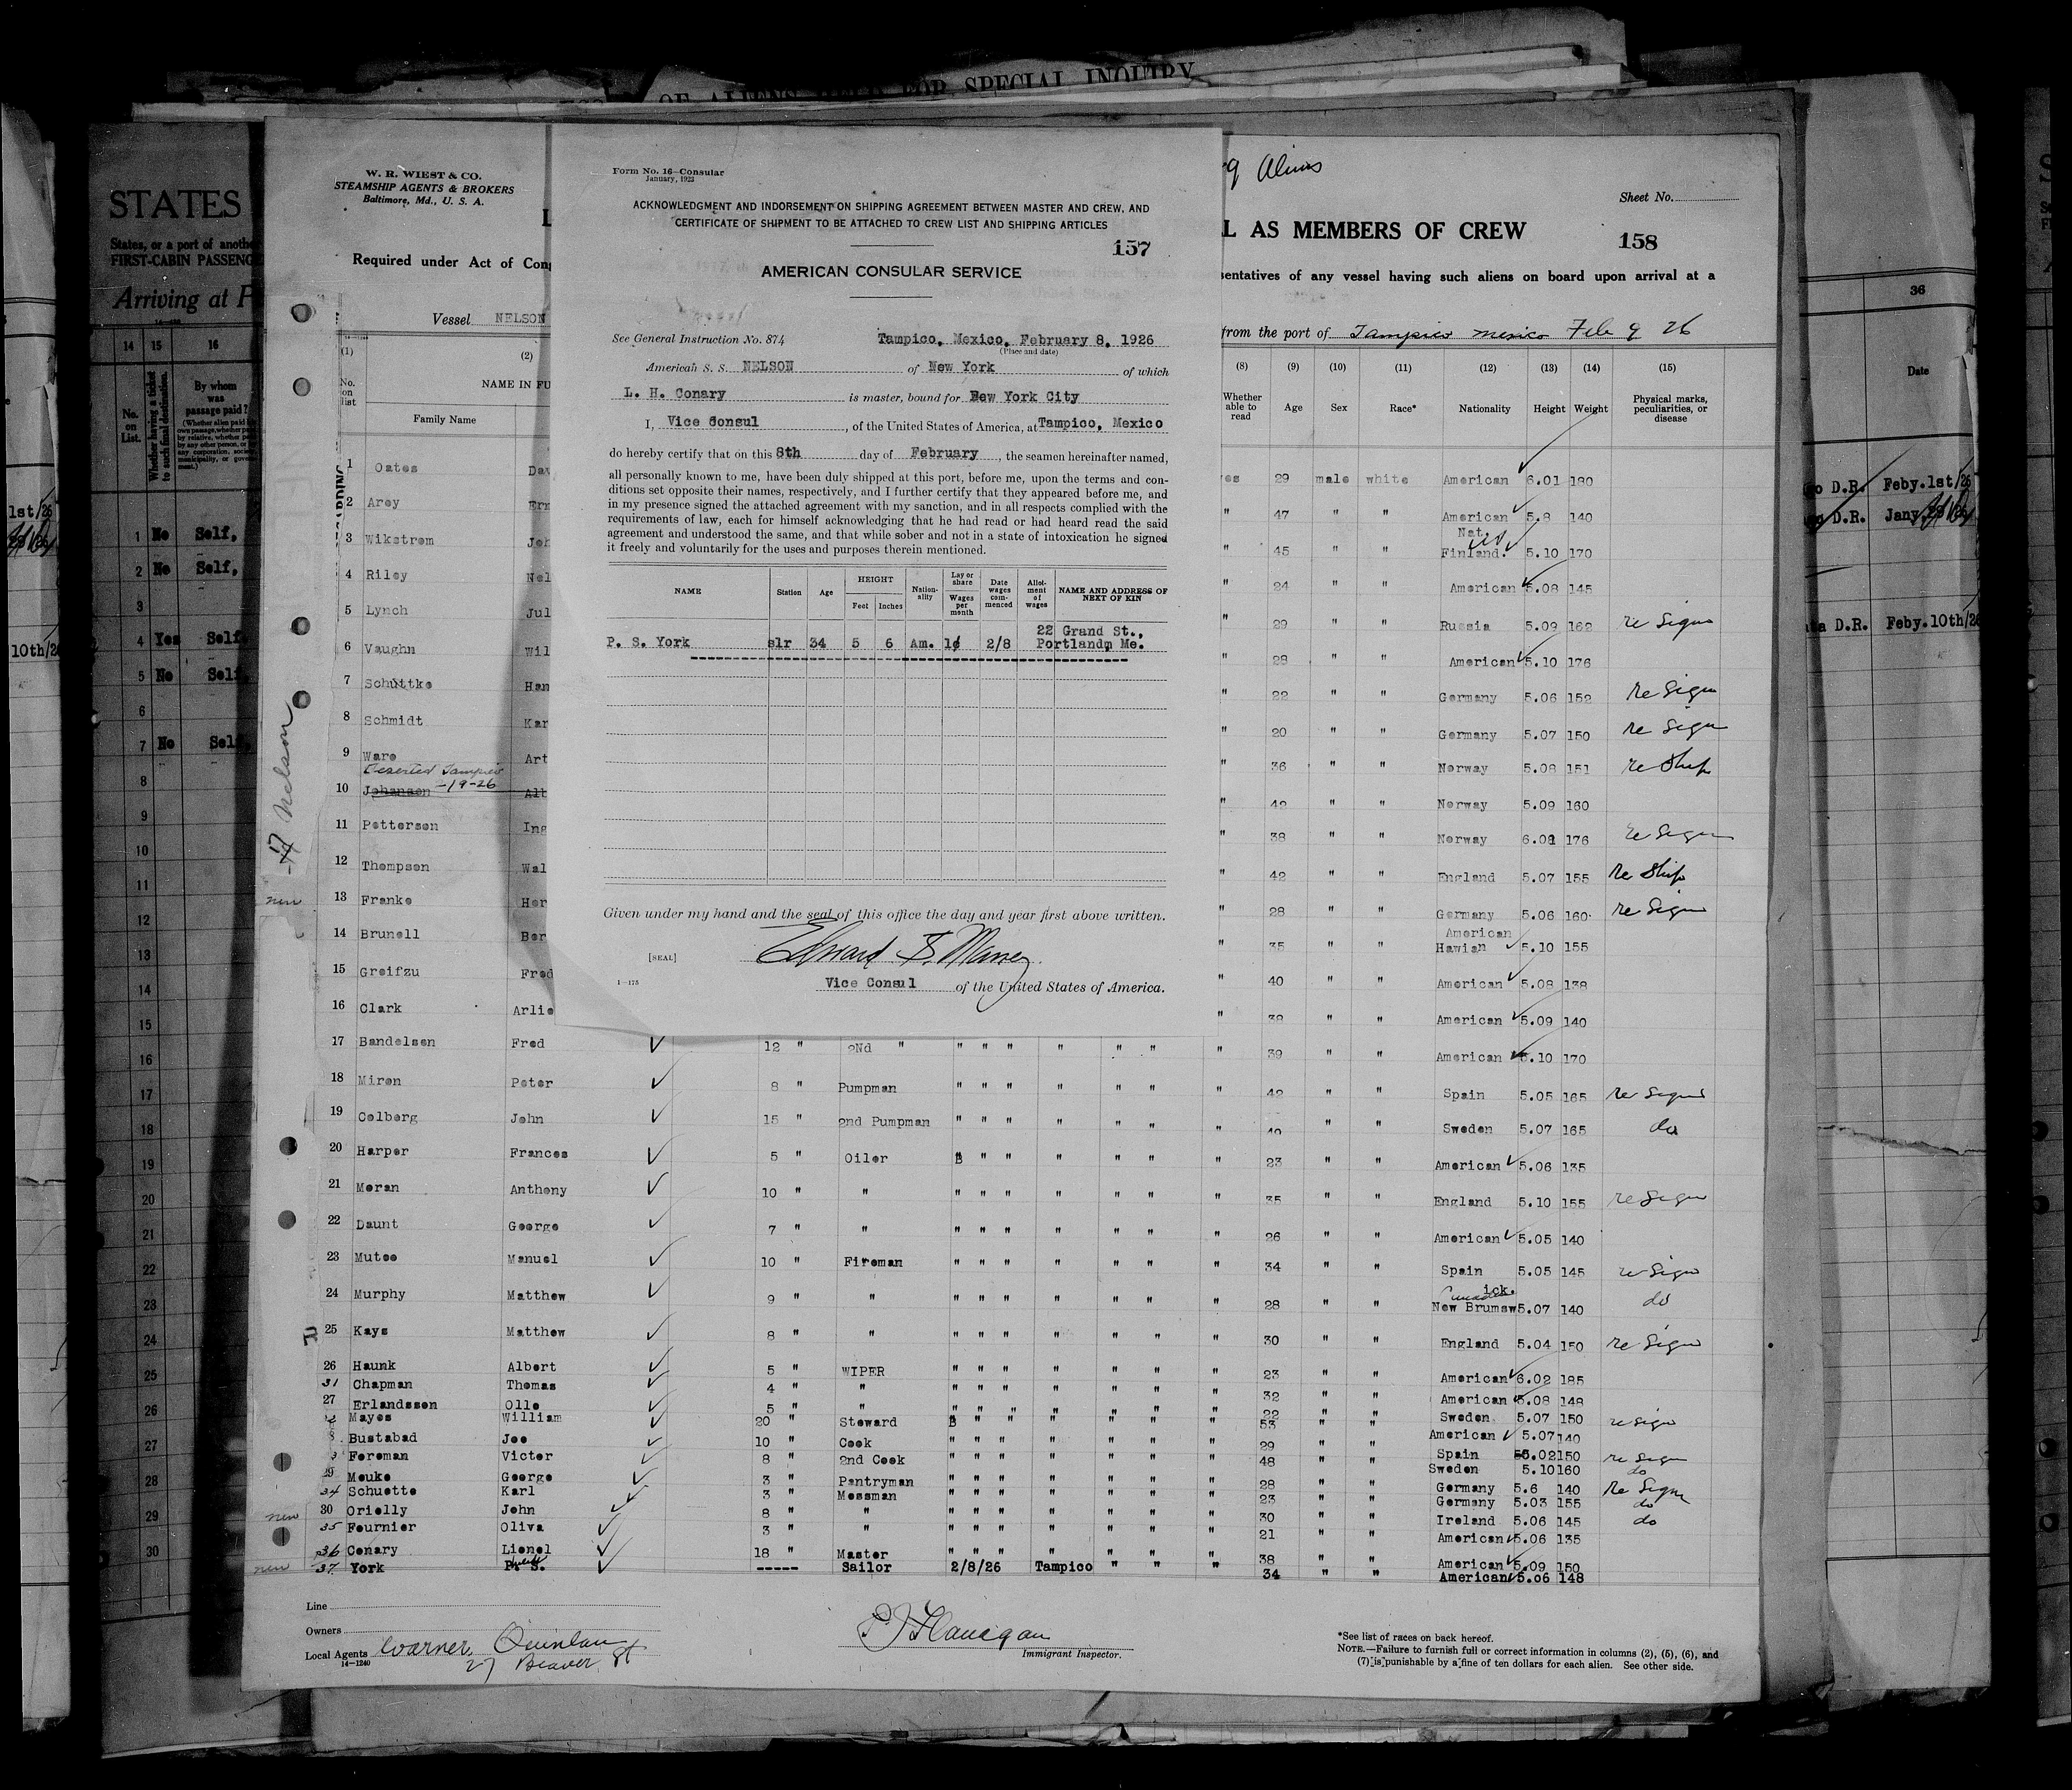 OF ALIENS HELD FOR SPECIAL INQUIRY
STATES
States, or a port of anothe
FIRST-CABIN PASSENG
Arriving at P
14 15 16
No. on List.
Whether having a ticket to such final destination.
By whom was passage paid?
1 No Self,
2 No Self,
3
4 Yes Self,
5 No Self,
6
7 No Self,
8
9
10
11
12
13
14
15
16
17
18
19
20
21
22
23
24
25
26
27
28
29
30
1st/26
10th/26
W. R. WIEST & CO.
STEAMSHIP AGENTS & BROKERS
Baltimore, Md., U. S. A.
L
Required under Act of Cong
Vessel NELSON
(1) (2)
No. on list
NAME IN FU
Family Name
Nelson
Form No. 16—Consular
January, 1923
ACKNOWLEDGMENT AND INDORSEMENT ON SHIPPING AGREEMENT BETWEEN MASTER AND CREW, AND
CERTIFICATE OF SHIPMENT TO BE ATTACHED TO CREW LIST AND SHIPPING ARTICLES
157
AMERICAN CONSULAR SERVICE
See General Instruction No. 874 Tampico, Mexico, February 8, 1926
(Place and date)
American S. S. NELSON of New York of which
L. H. Conary is master, bound for New York City
I, Vice Consul, of the United States of America, at Tampico, Mexico
do hereby certify that on this 8th day of February, the seamen hereinafter named,
all personally known to me, have been duly shipped at this port, before me, upon the terms and con-
ditions set opposite their names, respectively, and I further certify that they appeared before me, and
in my presence signed the attached agreement with my sanction, and in all respects complied with the
requirements of law, each for himself acknowledging that he had read or had heard read the said
agreement and understood the same, and that while sober and not in a state of intoxication he signed
it freely and voluntarily for the uses and purposes therein mentioned.
NAME Station Age HEIGHT Feet Inches Nation-ality Lay or share Wages per month Date wages com-menced Allot-ment of wages NAME AND ADDRESS OF NEXT OF KIN
22 Grand St.,
P. S. York slr 34 5 6 Am. 1¢ 2/8 Portland, Me.
Given under my hand and the seal of this office the day and year first above written.
[SEAL]
1—175
Vice Consul of the United States of America.
Aliens
Sheet No.
L AS MEMBERS OF CREW 158
sentatives of any vessel having such aliens on board upon arrival at a
from the port of Tampico Mexico Feb 9 26
(8) (9) (10) (11) (12) (13) (14) (15)
Whether able to read Age Sex Race* Nationality Height Weight Physical marks, peculiarities, or disease
1 Oates Dav es 29 male white American 6.01 180
2 Arey Ern " 47 " " American 5.8 140
3 Wikstrom Joh " 45 " " Nat. Finland. 5.10 170
4 Riley Nel " 24 " " American 5.08 145
5 Lynch Jul " 29 " " Russia 5.09 162 re Sign
6 Vaughn Wil " 28 " " American 5.10 176
7 Schuttke Han " 22 " " Germany 5.06 152 re Sign
8 Schmidt Kar " 20 " " Germany 5.07 150 re Sign
9 Ware Art " 36 " " Norway 5.08 151 re Ship
Deserted Tampico
10 Johansen 2/9-26 Alb " 42 " " Norway 5.09 160
11 Petterson Ing " 38 " " Norway 6.01 176 re Sign
12 Thompson Wal " 42 " " England 5.07 155 re Ship
new 13 Franke Her " 28 " " Germany 5.06 160 re Sign
14 Brunell Ber " 35 " " American Hawian 5.10 155
15 Greifzu Fred " 40 " " American 5.08 138
16 Clark Arlie " 38 " " American 5.09 140
17 Bandelsen Fred 12 " 2Nd " " " " " " " " 39 " " American 5.10 170
18 Miron Peter 8 " Pumpman " " " " " " " 42 " " Spain 5.05 165 re Signed
19 Colberg John 15 " 2nd Pumpman " " " " " " " 40 " " Sweden 5.07 165 do
20 Harper Frances 5 " Oiler B " " " " " " 23 " " American 5.06 135
21 Moran Anthony 10 " " " " " " " " " 35 " " England 5.10 155 re Sign
22 Daunt George 7 " " " " " " " " " 26 " " American 5.05 140
23 Mutoe Manuel 10 " Fireman " " " " " " " 34 " " Spain 5.05 145 re Sign
24 Murphy Matthew 9 " " " " " " " " " 28 " " Canada New Brunswick. 5.07 140 do
25 Kays Matthew 8 " " " " " " " " " 30 " " England 5.04 150 re Sign
26 Haunk Albert 5 " WIPER " " " " " " " 23 " " American 6.02 185
31 Chapman Thomas 4 " " " " " " " " " 32 " " American 5.08 148
27 Erlandsson Olle 5 " " " " " " " " " 22 " " Sweden 5.07 150 re sign
Mayes William 20 " Steward B " " " " " " 53 " " American 5.07 140
Bustabad Joe 10 " Cook " " " " " " " 29 " " Spain 5.02 150 re Sign
Foreman Victor 8 " 2nd Cook " " " " " " " 48 " " Sweden 5.10 160 do
29 Mouke George 3 " Pantryman " " " " " " " 28 " " Germany 5.6 140 Re Sign
34 Schuette Karl 3 " Messman " " " " " " " 23 " " Germany 5.03 155 do
new 30 Orielly John 8 " " " " " " " " " 30 " " Ireland 5.06 145 do
35 Fournier Oliva 3 " " " " " " " " " 21 " " American 5.06 135
36 Conary Lionel 18 " Master " " " " " " " 38 " " American 5.09 150
new 37 York P. S. ----- Sailor 2/8/26 Tampico " " " 34 " " American 5.06 148
Line
Owners
Local Agents Warner, Quinlan
27 Beaver St
14—1240
P J Flanagan
Immigrant Inspector.
*See list of races on back hereof.
NOTE.—Failure to furnish full or correct information in columns (2), (5), (6), and
(7) is punishable by a fine of ten dollars for each alien. See other side.
36
Date
o D.R. Feby.1st/26
D.R. Jany.
ta D.R. Feby.10th/26